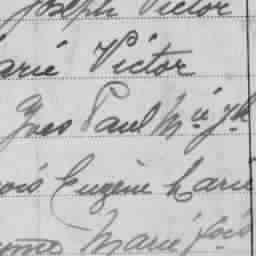 Joseph Victor
arie Victor
Yves Paul Mie Jh
çois Eugène Marie
Marie fois